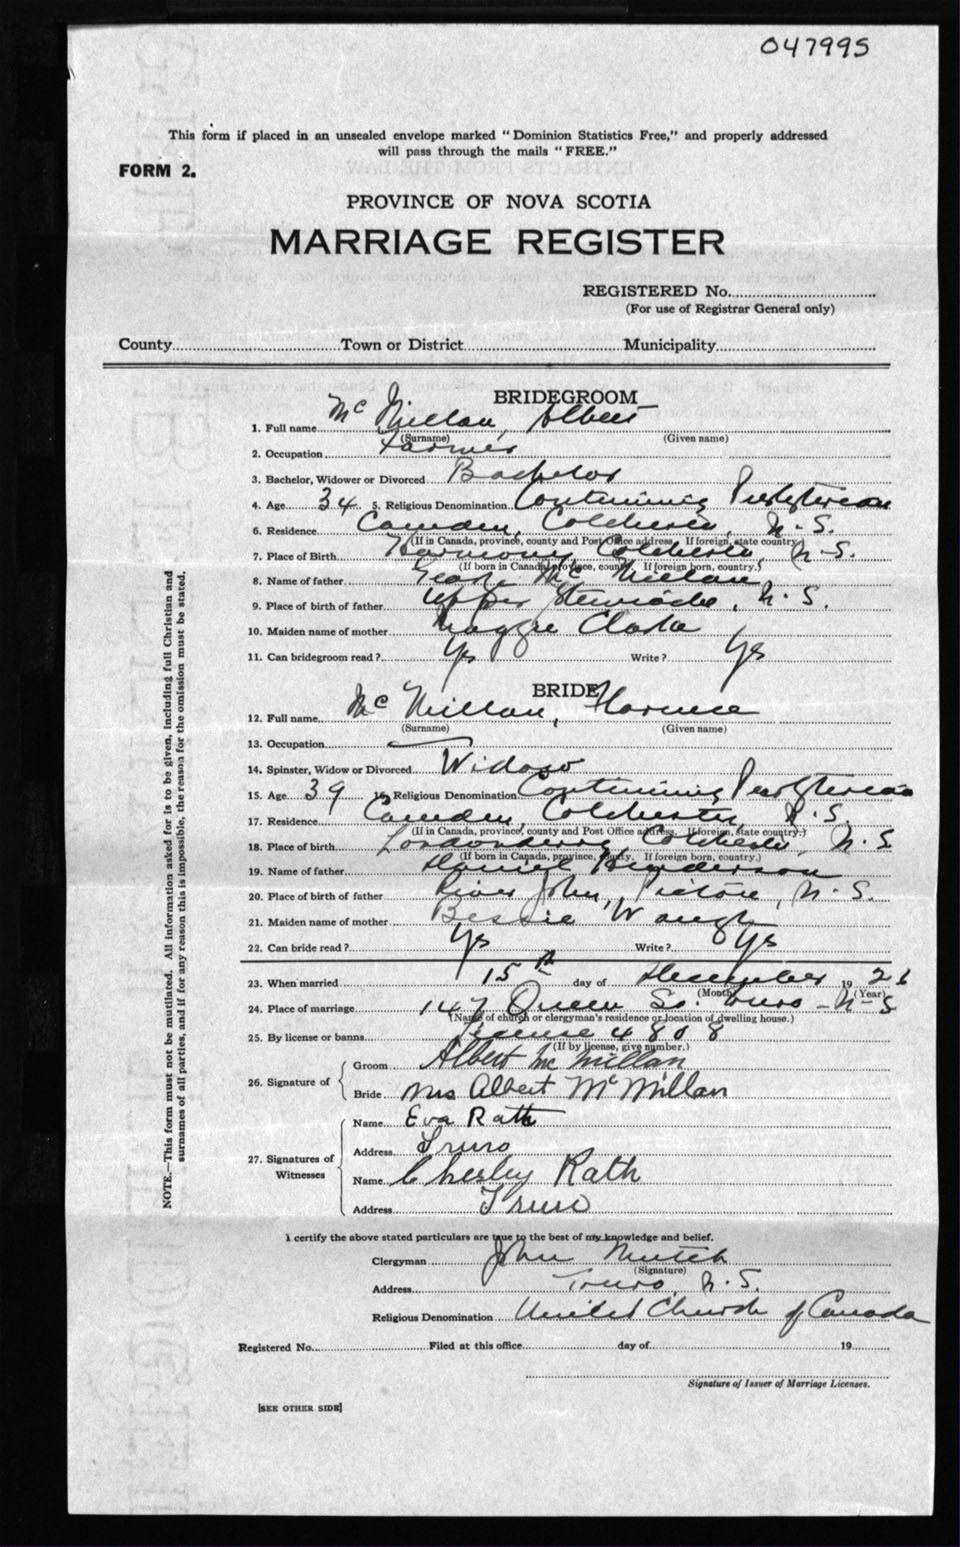 047995
This form if placed in an unsealed envelope marked "Dominion Statistics Free," and properly addressed
will pass through the mails "FREE."
FORM 2.
PROVINCE OF NOVA SCOTIA
MARRIAGE REGISTER
REGISTERED No.
(For use of Registrar General only)
County Town or District Municipality
BRIDEGROOM
1. Full name McMillan, Albert
(Surname) (Given name)
2. Occupation Farmer
3. Bachelor, Widower or Divorced Bachelor
4. Age 34 5. Religious Denomination Continuing Presbyterian
6. Residence Camden, Colchester, N.S.
(If in Canada, province, county and Post Office address. If foreign, state country.)
7. Place of Birth Harmony Colchester, N-S.
(If born in Canada, province, county. If foreign born, country.)
8. Name of father George McMillan
9. Place of birth of father Upper Stewiacke, N.S.
10. Maiden name of mother Maggie Clarke
11. Can bridegroom read? Yes Write? Yes
BRIDE
12. Full name McMillan, Florence
(Surname) (Given name)
13. Occupation —
14. Spinster, Widow or Divorced Widow
15. Age 39 16. Religious Denomination Continuing Presbyterian
17. Residence Camden, Colchester, N.S.
(If in Canada, province, county and Post Office address. If foreign, state country.)
18. Place of birth Londonderry Colchester, N.S
(If born in Canada, province, county. If foreign born, country.)
19. Name of father Daniel Henderson
20. Place of birth of father River John, Pictou, N.S.
21. Maiden name of mother Bessie Waugh
22. Can bride read? Yes Write? Yes
23. When married 15th day of December 1926
(Month) (Year)
24. Place of marriage 147 Queen St. Truro - N-S
(Name of church or clergyman's residence or location of dwelling house.)
25. By license or banns License 4808
(If by license, give number.)
26. Signature of Groom Albert McMillan
Bride Mrs Albert McMillan
27. Signatures of Witnesses
Name Eva Rath
Address Truro
Name Chesley Rath
Address Truro
I certify the above stated particulars are true to the best of my knowledge and belief.
Clergyman John Mutch
(Signature)
Address Truro, N.S.
Religious Denomination United Church of Canada
Registered No. Filed at this office day of 19
Signature of Issuer of Marriage Licenses.
[SEE OTHER SIDE]
NOTE.—This form must not be mutilated. All information asked for is to be given, including full Christian and
surnames of all parties, and if for any reason this is impossible, the reason for the omission must be stated.